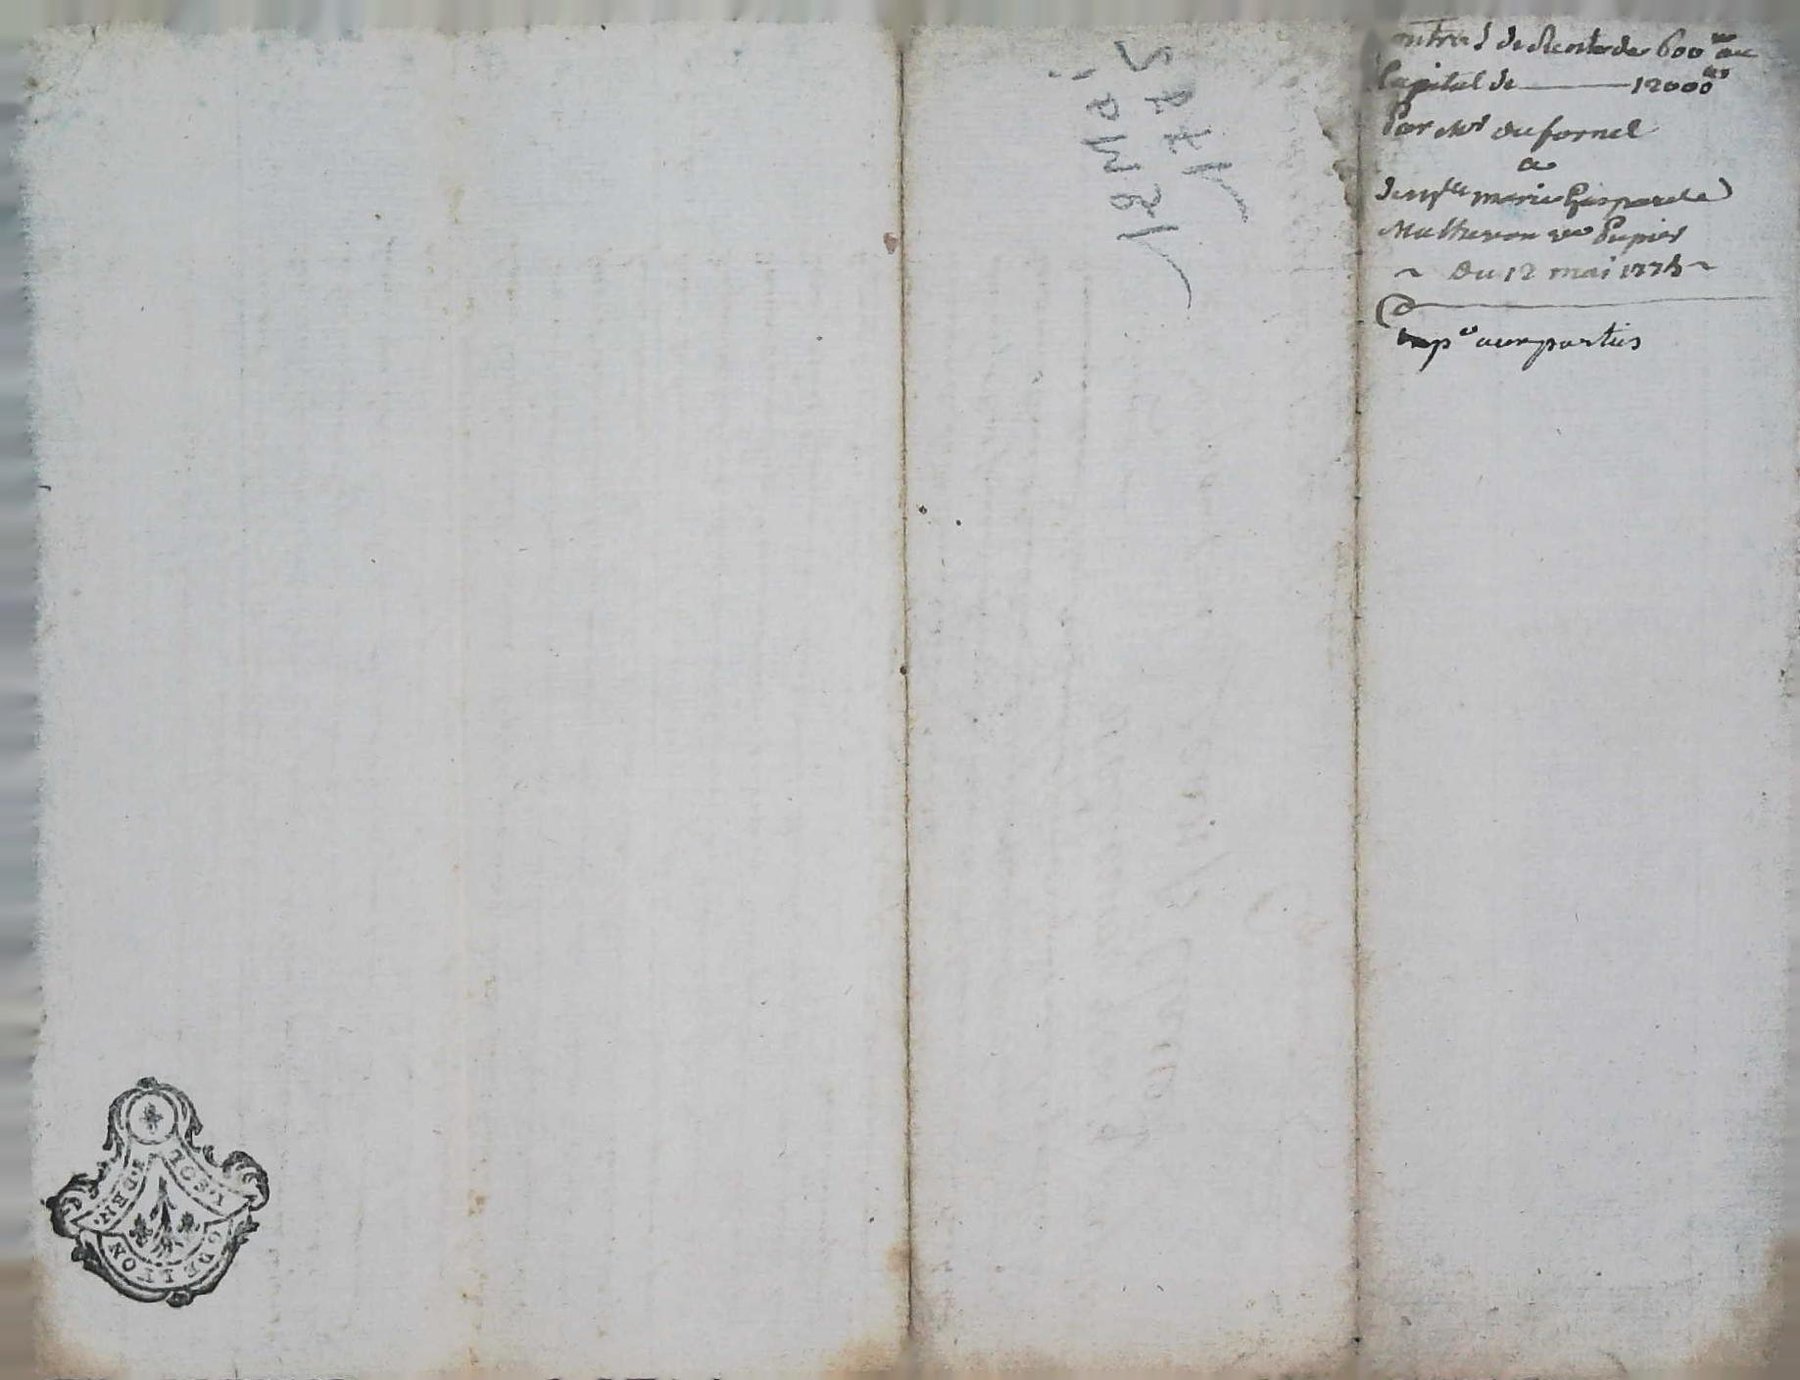 Contrat de Rente de 600ᵗᵗ au
Capital de ——— 12000ᵗᵗ
Par Mʳ du fornel
a
demˡˡᵉ marie Gasparde
Matheron vᵉ Pupier
~ Du 12 mai 1775 ~
expᵉ aux parties
1775
12 Mai
G DE LYON